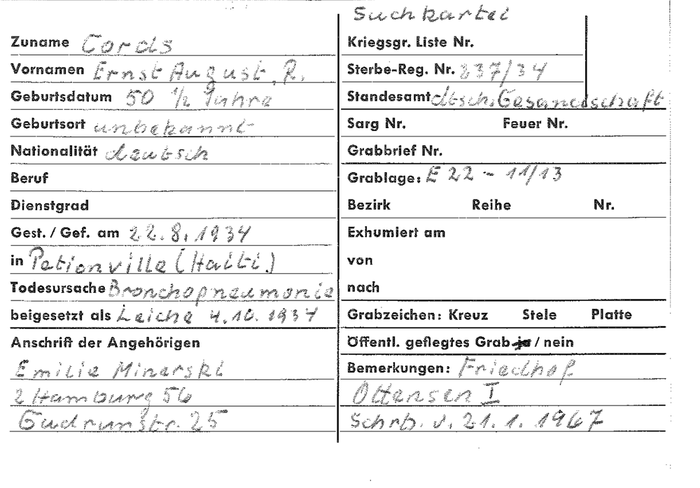 Suchkartei
Zuname Cords
Vornamen Ernst August, R.
Geburtsdatum 50 ½ Jahre
Geburtsort unbekannt
Nationalität deutsch
Beruf
Dienstgrad
Gest. / Gef. am 22.8.1934
in Petionville (Haiti)
Todesursache Bronchopneumonie
beigesetzt als Leiche 4.10.1934
Anschrift der Angehörigen
Emilie Minarski
2 Hamburg 56
Gudrunstr. 25
Kriegsgr. Liste Nr.
Sterbe-Reg. Nr. 237/34
Standesamt dtsch. Gesandschaft
Sarg Nr. Feuer Nr.
Grabbrief Nr.
Grablage: E 22 - 11/13
Bezirk Reihe Nr.
Exhumiert am
von
nach
Grabzeichen: Kreuz Stele Platte
Öffentl. gepflegtes Grab ja / nein
Bemerkungen: Friedhof
Ottensen I
Schrb. v. 21.1.1967